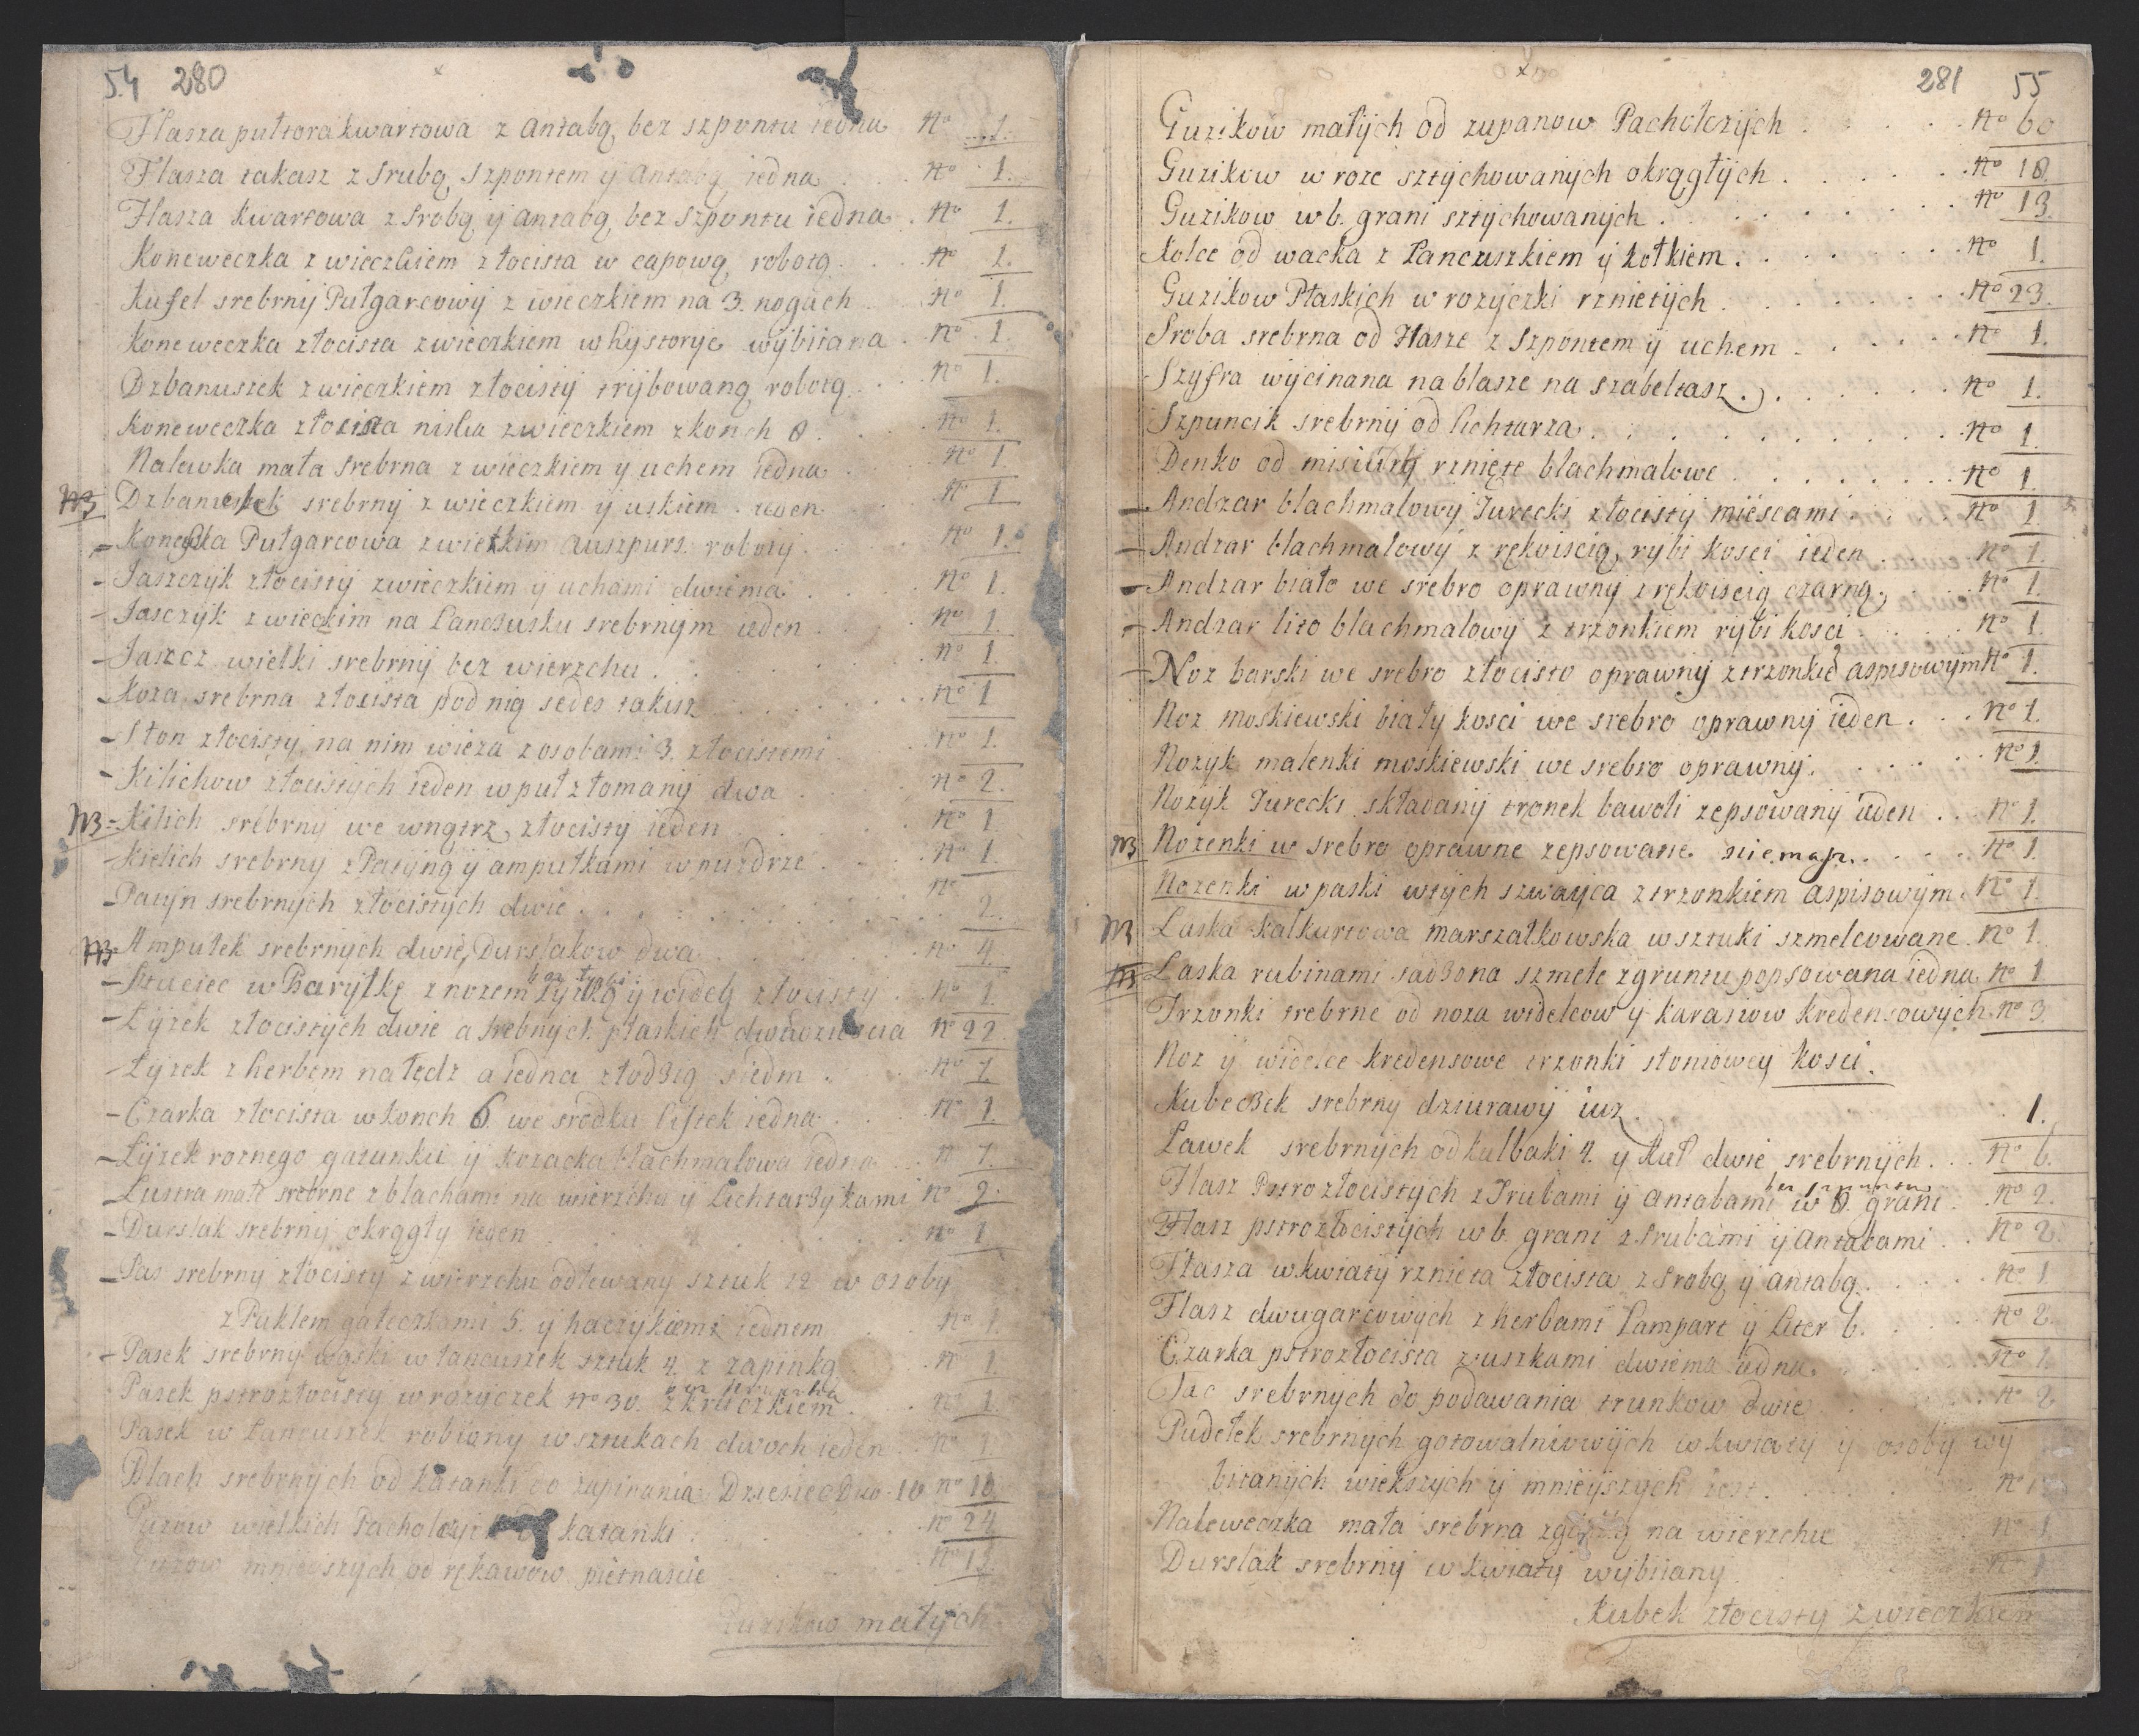 54 280
Flasza pułtorakwartowa z antabą, bez szpontu iedna No 1.
Flasza takasz z srubą, szpontem ÿ antabą iedna No 1.
Flasza kwartowa z srobą ÿ antabą, bez szpontu iedna No 1.
Koneweczka z wieczkiem złocista w capową robotę No 1.
Kufel srebrnÿ Pułgarcowÿ z wieczkiem na 3. nogach No 1.
Koneweczka złocista z wieczkiem w hÿstorÿe wÿbiiana No 1
Dzbanuszek z wieczkiem złocistÿ trÿbowaną robotą No 1.
Koneweczka złocista niska z wieczkiem z konch 8. No 1.
Nalewka mała srebrna z wieczkiem ÿ uchem iedna No 1
NB Dzbanuszek srebrnÿ z wieczkiem ÿ uskiem ieden No 1
Pułgarcowa z auszpurs. robotÿ No 1.
Jaszczÿk złocistÿ z wieczkiem ÿ uchami dwiema No 1.
Jasczÿk z wieckim na Lancusku srebrnÿm ieden No 1
Jaszcz wielki srebrnÿ bez wierzchu No 1.
Koza srebrna złocista pod nią sedes takisz No 1
Słon złocistÿ, na nim wieza z osobami 3. złocistemi No 1.
Kilichow złocistÿch ieden w puł złomanÿ dwa No 2.
NB Kilich srebrnÿ we wnątrz złocistÿ ieden No 1
Kielich srebrny z Patÿną ÿ ampułkami w puzdrze No 1.
Patÿn srebrnÿch złocistÿch dwie No 2.
NB Ampułek srebrnÿch dwie, Durslakow dwa No 4.
Sztuciec w Barÿłkę z nozem łÿzką ÿ widelą złocistÿ No 1.
Łÿzek złocistÿch dwie a srebnÿch płaskich dwadziescia No 22
Łÿzek z herbem na Łędz a iedna z łodzią siedm No 7.
Czarka złocista w konch 6. we srodku listek iedna No 1.
Łÿzek roznego gatunku ÿ kozacka blachmalowa iedna No 7.
Lustra małe srebrne z blachami na wierzchu ÿ Lichtarzÿkami No 2.
Durslak srebrnÿ okrągłÿ ieden No 1
Pas srebrnÿ złocistÿ z wierzchu odlewanÿ sztuk 12 w osobÿ
z Puklem gałeczkami 5. ÿ haczÿkiem iednem No 1.
Pasek srebrnÿ wąski w łancuszek sztuk 4. z zapinką No 1.
Pasek pstrozłocistÿ w rozÿczek No 30. z kruczkiem No 1.
Pasek w łancuszek robionÿ w sztukach dwoch ieden No 1.
Blach srebrnÿch od katanki do zapinania No 10
Guzow wielkich Pacholczÿch od katanki No 24
Guzow mnieÿszÿch od rękawow pietnascie
Guzikow małÿch

281 55
Guzikow małÿch od zupanow Pacholczÿch No 60
Guzikow w roze sztÿchowanÿch okrągłÿch No 18.
Guzikow w 6. grani sztÿchowanÿch No 13.
Kolce od wacka z Lancuszkiem ÿ kołkiem No 1.
Guzikow Płaskich w rozÿczki rznietÿch No 23.
Sroba srebrna od Flasze z szpontem ÿ uchem No 1.
Szÿfra wÿcinana na blasze na szabeltasz No 1.
Szpuncik srebrnÿ od lichtarza No 1.
Denko od misiurÿ rznięte blachmalowe No 1.
Andzar blachmalowÿ Turecki złocistÿ miescami No 1
Andzar blachmalowÿ z rękoiscią rÿbi kosci ieden No 1.
Andzar biało we srebro oprawnÿ z rękoiscią czarną No 1.
Andzar lito blachmalowÿ z trzonkiem rÿbi kosci No 1.
Noz barski we srebro złocisto oprawnÿ z trzonkiē aspisowÿm No 1.
Noz moskiewski białÿ kosci we srebro oprawnÿ ieden No 1.
Nozÿk malenki moskiewski we srebro oprawnÿ No 1.
Nozÿk Turecki składanÿ tronek bawoli zepsowanÿ ieden No 1.
NB Nozenki w srebro oprawne zepsowane. niemasz No 1.
Nozenki w paski w tÿch szwaÿca z trzonkiem aspisowÿm No 1.
NB Laska kalkurtowa marszałkowska w sztuki szmelcowane No 1.
NB Laska rubinami sadzona szmelc z gruntu popsowana iedna No 1
Trzonki srebrne od noza widelcow ÿ karasiow kredensowÿch No 3
Noz ÿ widelce kredensowe trzonki słoniowey kosci.
Kubeczek srebrnÿ dziurawÿ iuz 1.
Ławek srebrnÿch od kulbaki 4. ÿ kul dwie srebrnÿch No 6.
Flasz Pstrozłocistÿch z Srubami ÿ antabami w 8. grani No 2.
Flasz pstrozłocistÿch w 6. grani z srubami ÿ antabami No 2.
Flasza w kwiatÿ rznieta złocista z srobą ÿ antabą No 1
Flasz dwugarcowÿch z herbami Lampart ÿ Liter 6. No 2.
Czarka pstrozłocista z uszkami dwiema iedna No 1.
Tac srebrnÿch do podawania trunkow dwie No 2
Pudełek srebrnÿch gotowalniowÿch w kwiatÿ ÿ osobÿ wÿ
biianÿch wiekszÿch ÿ mnieÿszÿch No
Naleweczka mała srebrna na wierzchu No 1
Durslak srebrnÿ w kwiatÿ wÿbiianÿ No 1
Kubek złocistÿ z wieczkiem